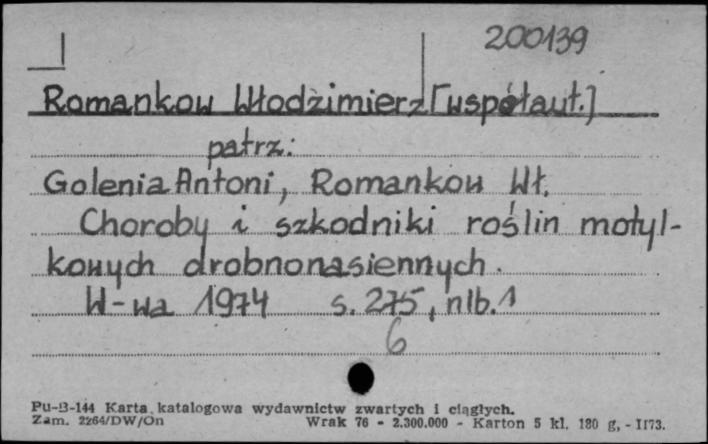 200139
Romankow Włodzimierz [współaut.]
patrz:
Golenia Antoni, Romankow Wł.
Choroby i szkodniki roślin motyl-
kowych drobnonasiennych.
W-wa 1974 s. 275, nlb. 1
6
Pu-B-144 Karta katalogowa wydawnictw zwartych i ciągłych.
Zam. 2264/DW/On Wrak 76 - 2.300.000 - Karton 5 kl. 180 g, - II73.